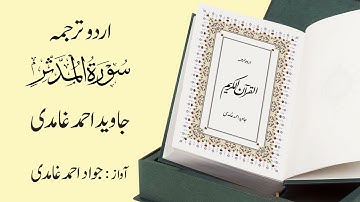 اردو ترجمہ
سورۃ المدثر
جاوید احمد غامدی
آواز : جواد احمد غامدی
اردو ترجمہ
القرآن الکریم
جاوید احمد غامدی